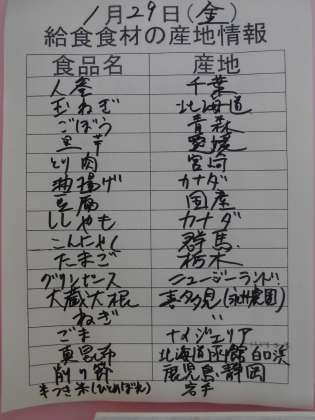 1月29日(金)
給食食材の産地情報
食品名 産地
人参 千葉
玉ねぎ 北海道
ごぼう 青森
里芋 愛媛
とり肉 宮崎
油揚げ カナダ
豆腐 国産
ししゃも カナダ
こんにゃく 群馬
たまご 栃木
グリンピース ニュージーランド
大蔵大根 喜多見(永井農園)
ねぎ 〃
ごま ナイジェリア
真昆布 北海道函館 白口浜
削り節 鹿児島、静岡
米(ひとめぼれ) 岩手